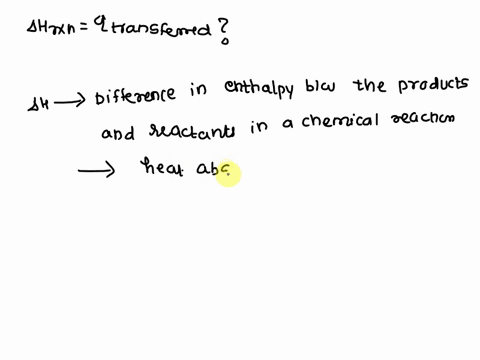 ΔHrxn = q transferred?
ΔH → Difference in enthalpy b/w the products
and reactants in a chemical reaction
→ heat abs